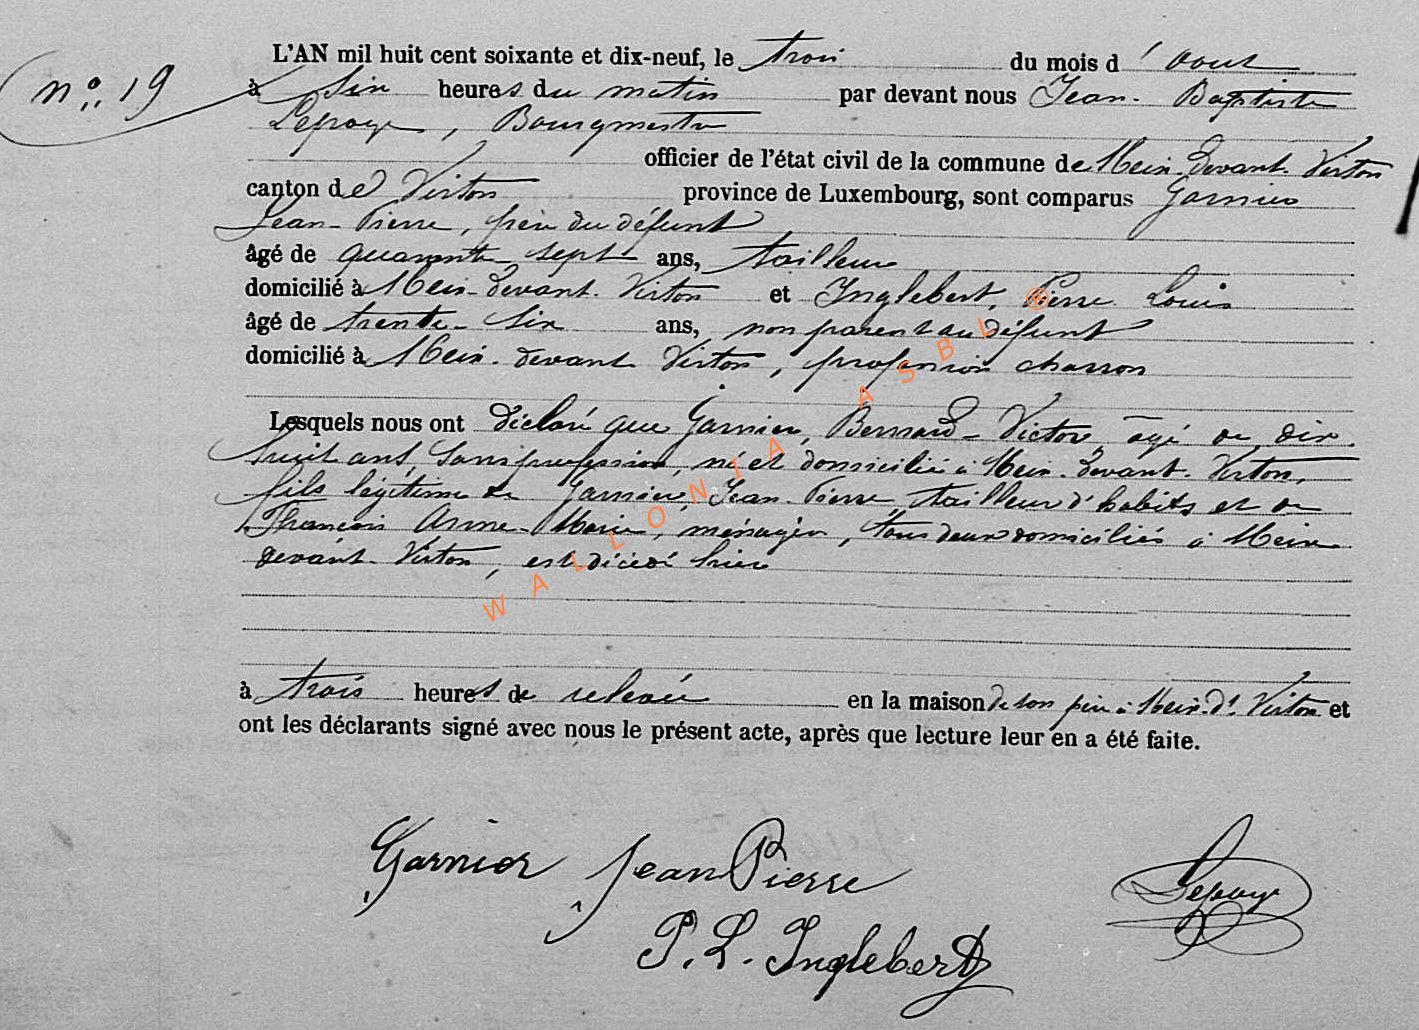 L'AN mil huit cent soixante et dix-neuf, le trois du mois d'août
n° 19
à six heures du matin par devant nous Jean-Baptiste
Lepage, Bourgmestre
officier de l'état civil de la commune de Meix-devant-Virton
canton de Virton province de Luxembourg, sont comparus Garnier
Jean-Pierre, père du défunt
âgé de quarante-sept ans, tailleur
domicilié à Meix-devant-Virton et Inglebert, Pierre Louis
âgé de trente-six ans, non parent au défunt
domicilié à Meix-devant Virton, profession charron
Lesquels nous ont déclaré que Garnier, Bernard-Victor, âgé de dix-
huit ans, sans profession, né et domicilié à Meix-devant-Virton,
fils légitime de Garnier, Jean-Pierre, tailleur d'habits et de
François Anne-Marie, ménagère, tous deux domiciliés à Meix
devant-Virton, est décédé hier
à trois heures de relevée en la maison de son père à Meix-dt-Virton et
ont les déclarants signé avec nous le présent acte, après que lecture leur en a été faite.
Garnier Jean Pierre
Lepage
P. L. Inglebert
WALLONIA ASBL ®